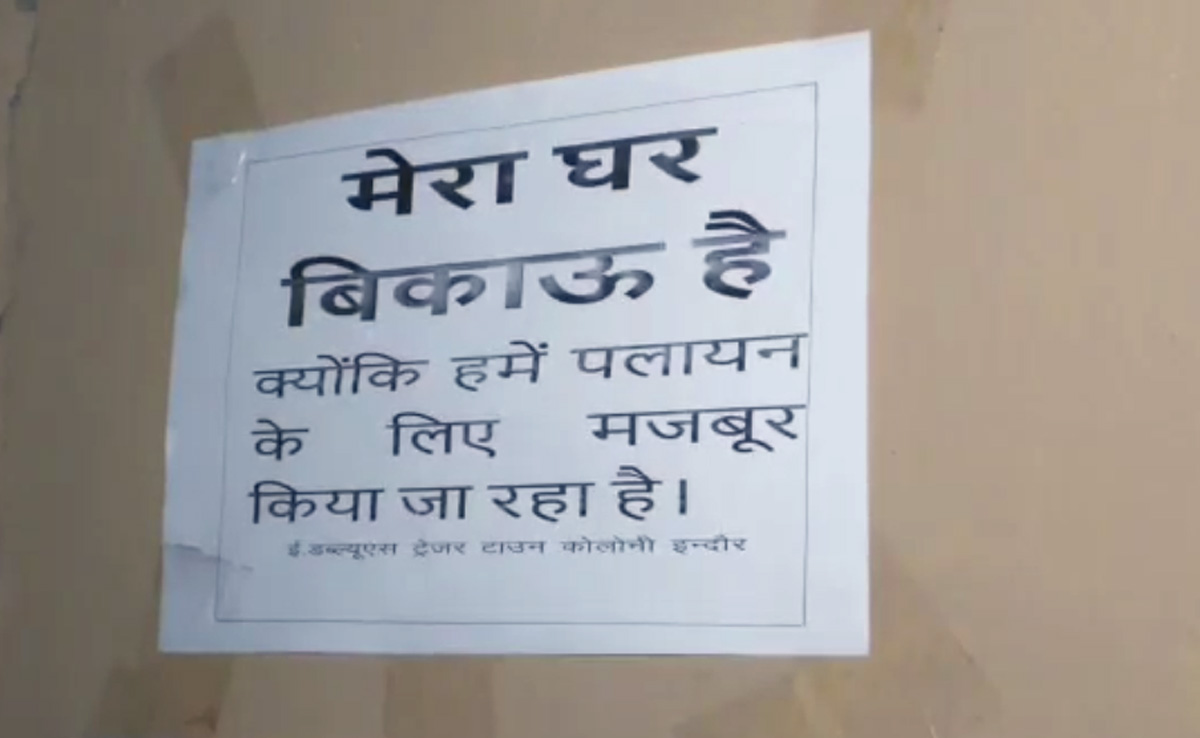 मेरा घर
बिकाऊ है
क्योंकि हमें पलायन
के लिए मजबूर
किया जा रहा है।
ई.डब्ल्यूएस ट्रेजर टाउन कोलोनी इन्दौर